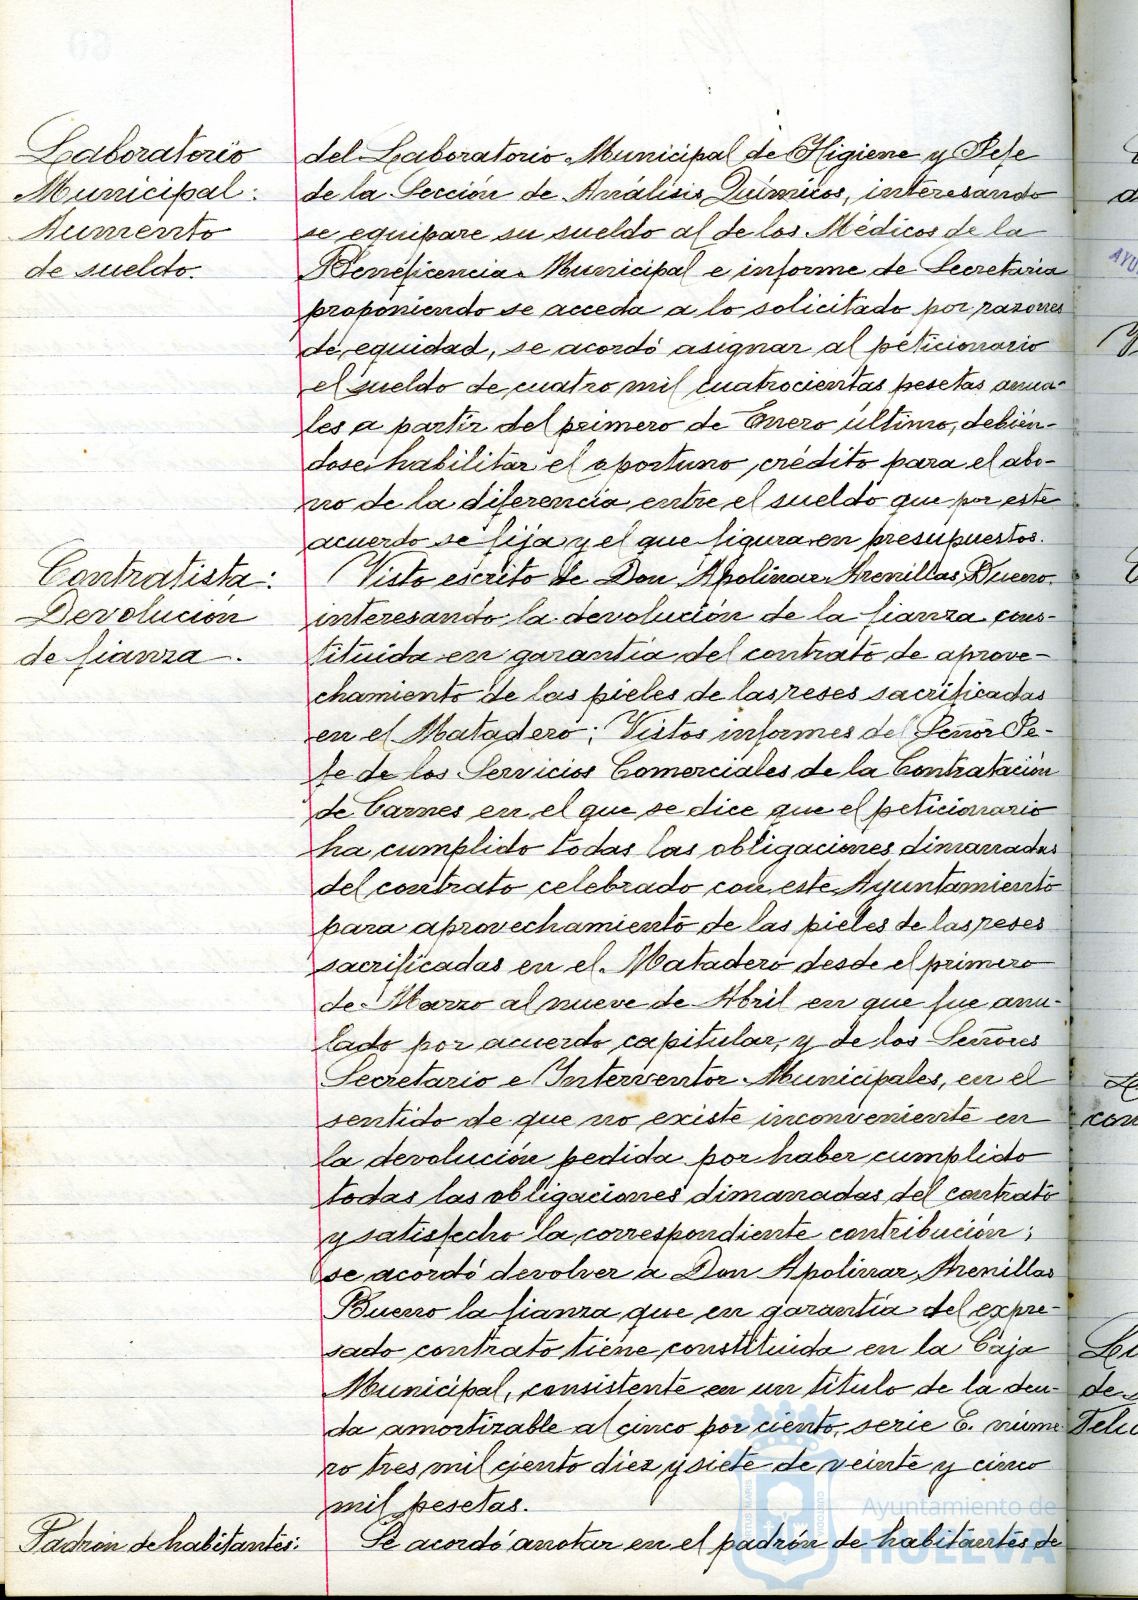 Laboratorio
Municipal:
Aumento
de sueldo.
del Laboratorio Municipal de Higiene y Jefe
de la Sección de Análisis Químicos, interesando
se equipare su sueldo al de los Médicos de la
Beneficencia Municipal e informe de Secretaria
proponiendo se acceda a lo solicitado por razones
de equidad, se acordó asignar al peticionario
el sueldo de cuatro mil cuatrocientas pesetas anua-
les a partir del primero de Enero último, debién-
dose habilitar el oportuno crédito para el abo-
no de la diferencia entre el sueldo que por este
acuerdo se fija y el que figura en presupuestos.
Contratista:
Devolución
de fianza.
Visto escrito de Don Apolinar Arenillas Bueno
interesando la devolución de la fianza cons-
tituida en garantía del contrato de aprove-
chamiento de las pieles de las reses sacrificadas
en el Matadero; Vistos informes del Señor Je-
fe de los Servicios Comerciales de la Contratación
de Carnes en el que se dice que el peticionario
ha cumplido todas las obligaciones dimanadas
del contrato celebrado con este Ayuntamiento
para aprovechamiento de las pieles de las reses
sacrificadas en el Matadero desde el primero
de Marzo al nueve de Abril en que fue anu-
lado por acuerdo capitular, y de los Señores
Secretario e Interventor Municipales, en el
sentido de que no existe inconveniente en
la devolución pedida por haber cumplido
todas las obligaciones dimanadas del contrato
y satisfecho la correspondiente contribución;
se acordó devolver a Don Apolinar Arenillas
Bueno la fianza que en garantía del expre-
sado contrato tiene constituida en la Caja
Municipal, consistente en un título de la deu-
da amortizable al cinco por ciento, serie E. núme-
ro tres mil ciento diez y siete de veinte y cinco
mil pesetas.
Padrón de habitantes:
Se acordó anotar en el padrón de habitantes de
Ayuntamiento de
HUELVA